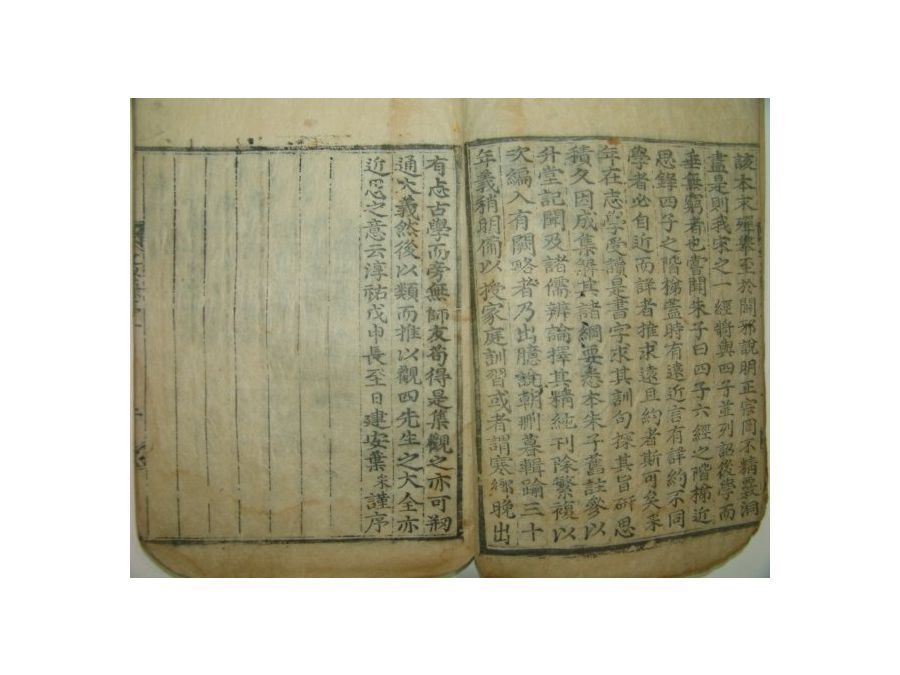 該本末殫擧至於闢邪說明正宗罔不精覈洞
盡是則我宋之一經將與四子並列詔後學而
垂無窮者也嘗聞朱子曰四子六經之階梯近
思錄四子之階梯盖時有遠近言有詳約不同
學者必自近而詳者推求遠且約者斯可矣采
年在志學受讀是書字求其訓句探其旨硏思
積久因成集解其諸綱要悉本朱子舊註參以
升堂記聞及諸儒辨論擇其精純刊除繁複以
次編入有闕略者乃出臆說朝刪暮輯踰三十
年義稍明備以授家庭訓習或者謂寒鄉晩出
有志古學而旁無師友苟得是集觀之亦可刱
通大義然後以類而推以觀四先生之大全亦
近思之意云淳祐戊申長至日建安葉采謹序